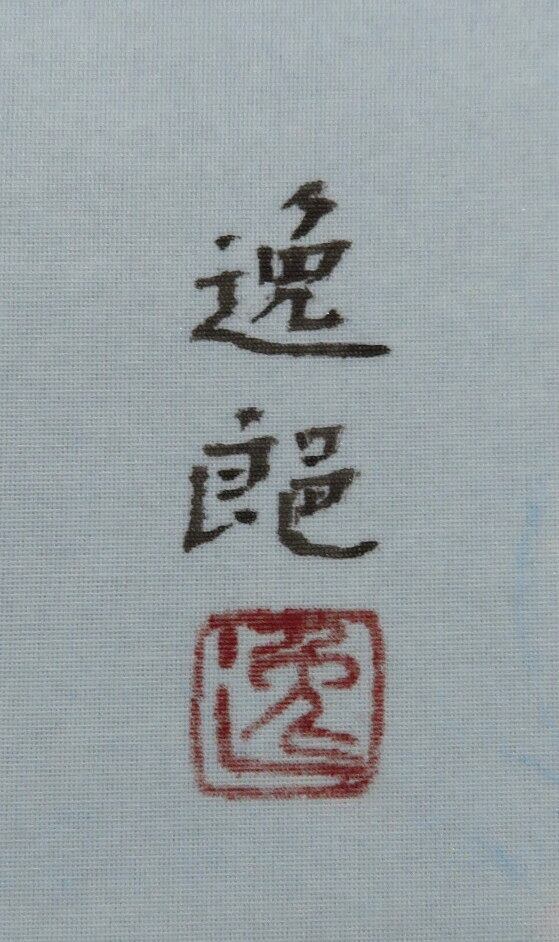 逸
郎
逸